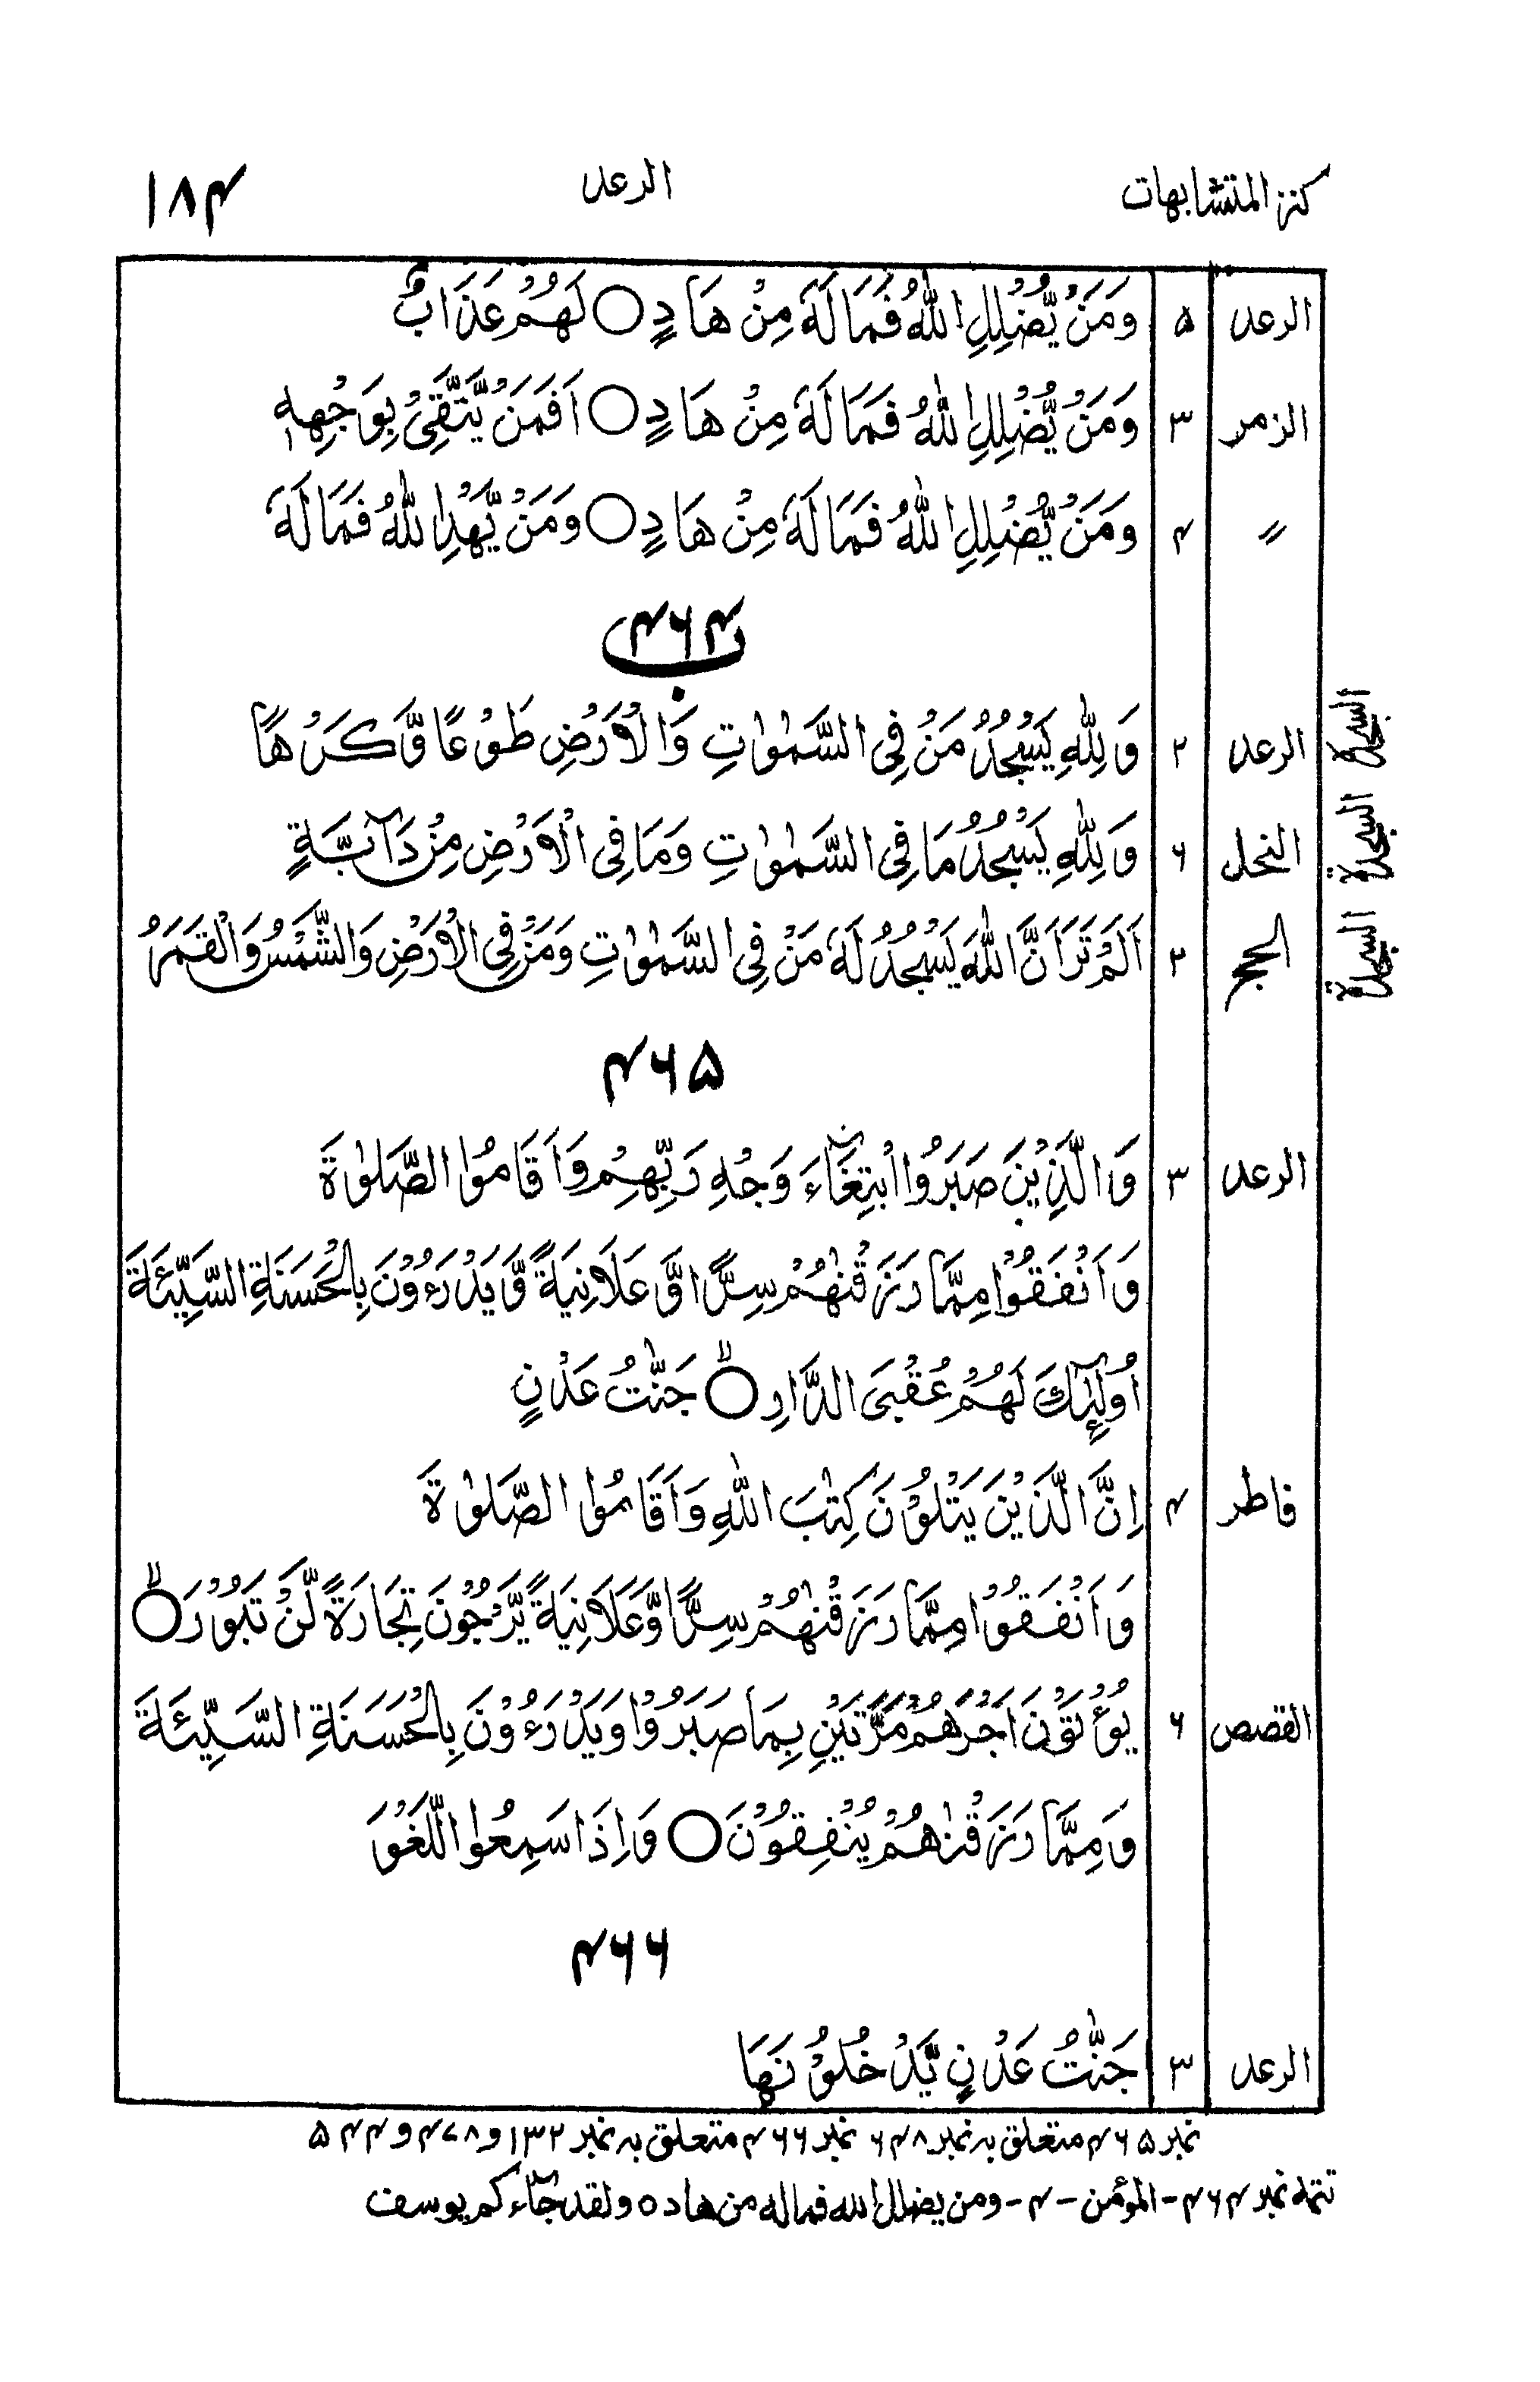 كنز المتشابهات الرعد ۱۸۴
الرعد ۵ وَمَنْ يُّضْلِلِ اللّٰهُ فَمَا لَهٗ مِنْ هَادٍ ○ لَهُمْ عَذَابٌ
الزمر ۳ وَمَنْ يُّضْلِلِ اللّٰهُ فَمَا لَهٗ مِنْ هَادٍ ○ اَفَمَنْ يَّتَّقِيْ بِوَجْهِهٖ
〃 ۴ وَمَنْ يُّضْلِلِ اللّٰهُ فَمَا لَهٗ مِنْ هَادٍ ○ وَمَنْ يَّهْدِ اللّٰهُ فَمَا لَهٗ
۴۶۴ ب
الرعد ۲ وَلِلّٰهِ يَسْجُدُ مَنْ فِى السَّمٰوٰتِ وَالْاَرْضِ طَوْعًا وَّكَرْهًا
السجدة
النحل ۶ وَلِلّٰهِ يَسْجُدُ مَا فِى السَّمٰوٰتِ وَمَا فِى الْاَرْضِ مِنْ دَآبَّةٍ
السجدة
الحج ۲ اَلَمْ تَرَ اَنَّ اللّٰهَ يَسْجُدُ لَهٗ مَنْ فِى السَّمٰوٰتِ وَمَنْ فِى الْاَرْضِ وَالشَّمْسُ وَالْقَمَرُ
السجدة
۴۶۵
الرعد ۳ وَالَّذِيْنَ صَبَرُوا ابْتِغَآءَ وَجْهِ رَبِّهِمْ وَاَقَامُوا الصَّلٰوةَ
وَاَنْفَقُوْا مِمَّا رَزَقْنٰهُمْ سِرًّا وَّعَلَانِيَةً وَّيَدْرَءُوْنَ بِالْحَسَنَةِ السَّيِّئَةَ
اُولٰٓئِكَ لَهُمْ عُقْبَى الدَّارِ ○ لا جَنّٰتُ عَدْنٍ
فاطر ۴ اِنَّ الَّذِيْنَ يَتْلُوْنَ كِتٰبَ اللّٰهِ وَاَقَامُوا الصَّلٰوةَ
وَاَنْفَقُوْا مِمَّا رَزَقْنٰهُمْ سِرًّا وَّعَلَانِيَةً يَّرْجُوْنَ تِجَارَةً لَّنْ تَبُوْرَ ○ لا
القصص ۶ يُؤْتَوْنَ اَجْرَهُمْ مَّرَّتَيْنِ بِمَا صَبَرُوْا وَيَدْرَءُوْنَ بِالْحَسَنَةِ السَّيِّئَةَ
وَمِمَّا رَزَقْنٰهُمْ يُنْفِقُوْنَ ○ وَاِذَا سَمِعُوا اللَّغْوَ
۴۶۶
الرعد ۳ جَنّٰتُ عَدْنٍ يَّدْخُلُوْنَهَا
نمبر ۴۶۵ متعلق بہ نمبر ۶۴۸ نمبر ۴۶۶ متعلق بہ نمبر ۱۳۲ و ۴۷۸ و ۵۴۴
تتمہ نمبر ۴۶۴ - المؤمن - ۴ - ومن يضلل الله فماله من هاد ○ ولقد جآءكم يوسف